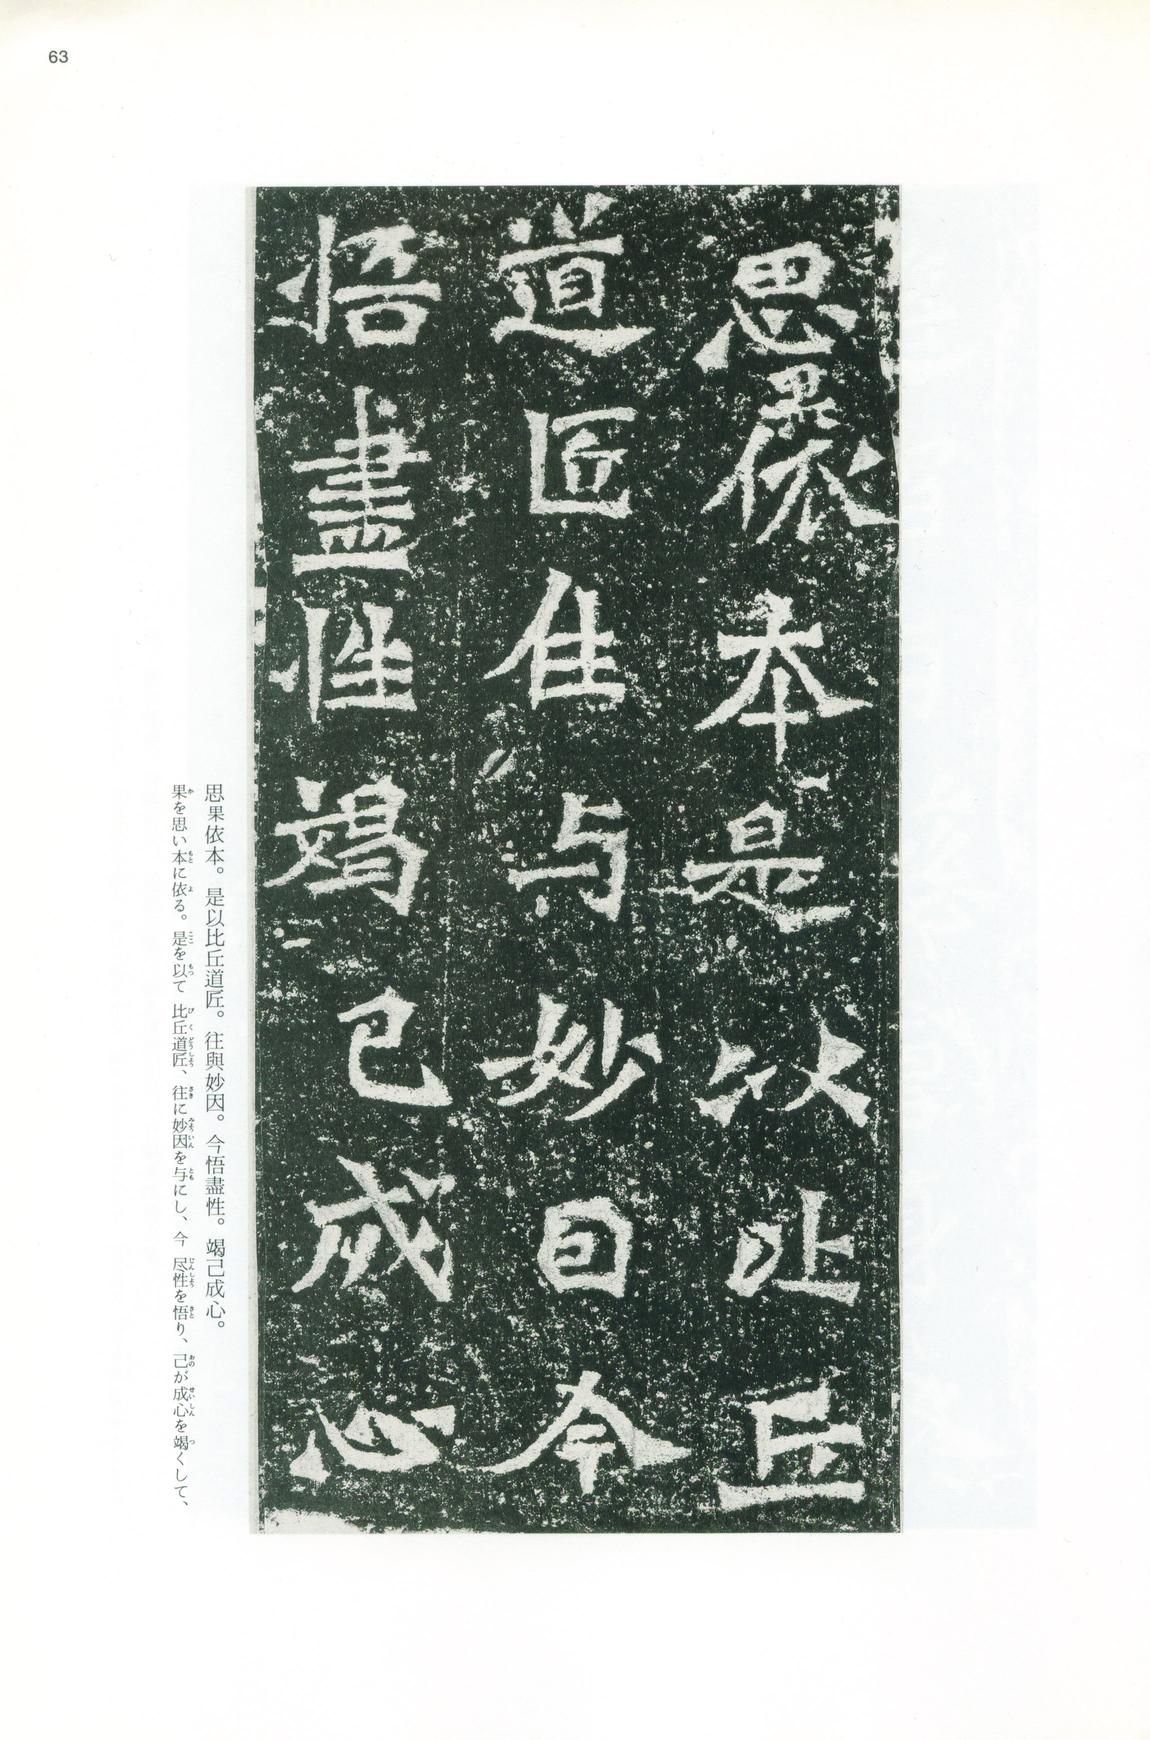 63
思果依本是以比丘
道匠往与妙因今
悟盡性竭己成心
思果依本。是以比丘道匠。往與妙因。今悟盡性。竭己成心。
果を思い本に依る。是を以て比丘道匠、往に妙因を与にし、今尽性を悟り、己が成心を竭くして、